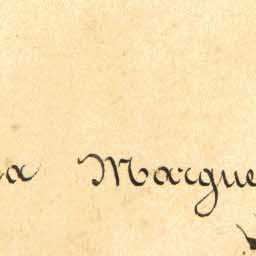 a Margue